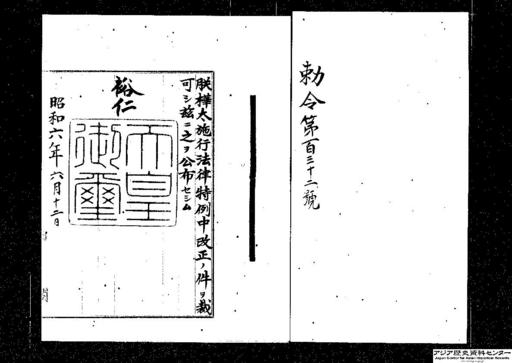 勅令第百三十二號
朕樺太施行法律特例中改正ノ件ヲ裁
可シ玆ニ之ヲ公布セシム
裕仁
天皇
御璽
昭和六年六月十二日
アジア歴史資料センター
Japan Center for Asian Historical Records